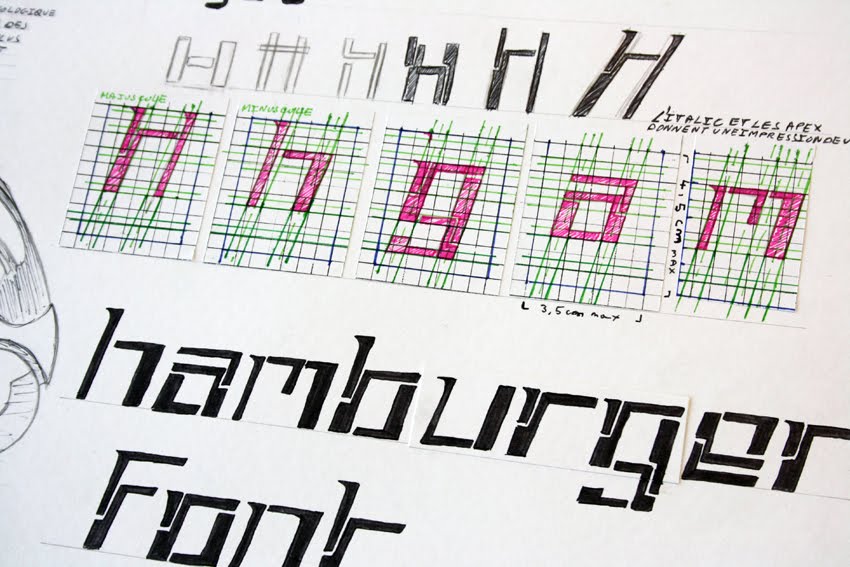 OLOGIQUE
DES
LUS
T
H H H H H H
MAJUSCULE
MINUSCULE
L'ITALIC ET LES APEX
DONNENT UNE IMPRESSION DE V
H h g a m
4,5 CM MAX
3,5 cm max
hamburger
Font